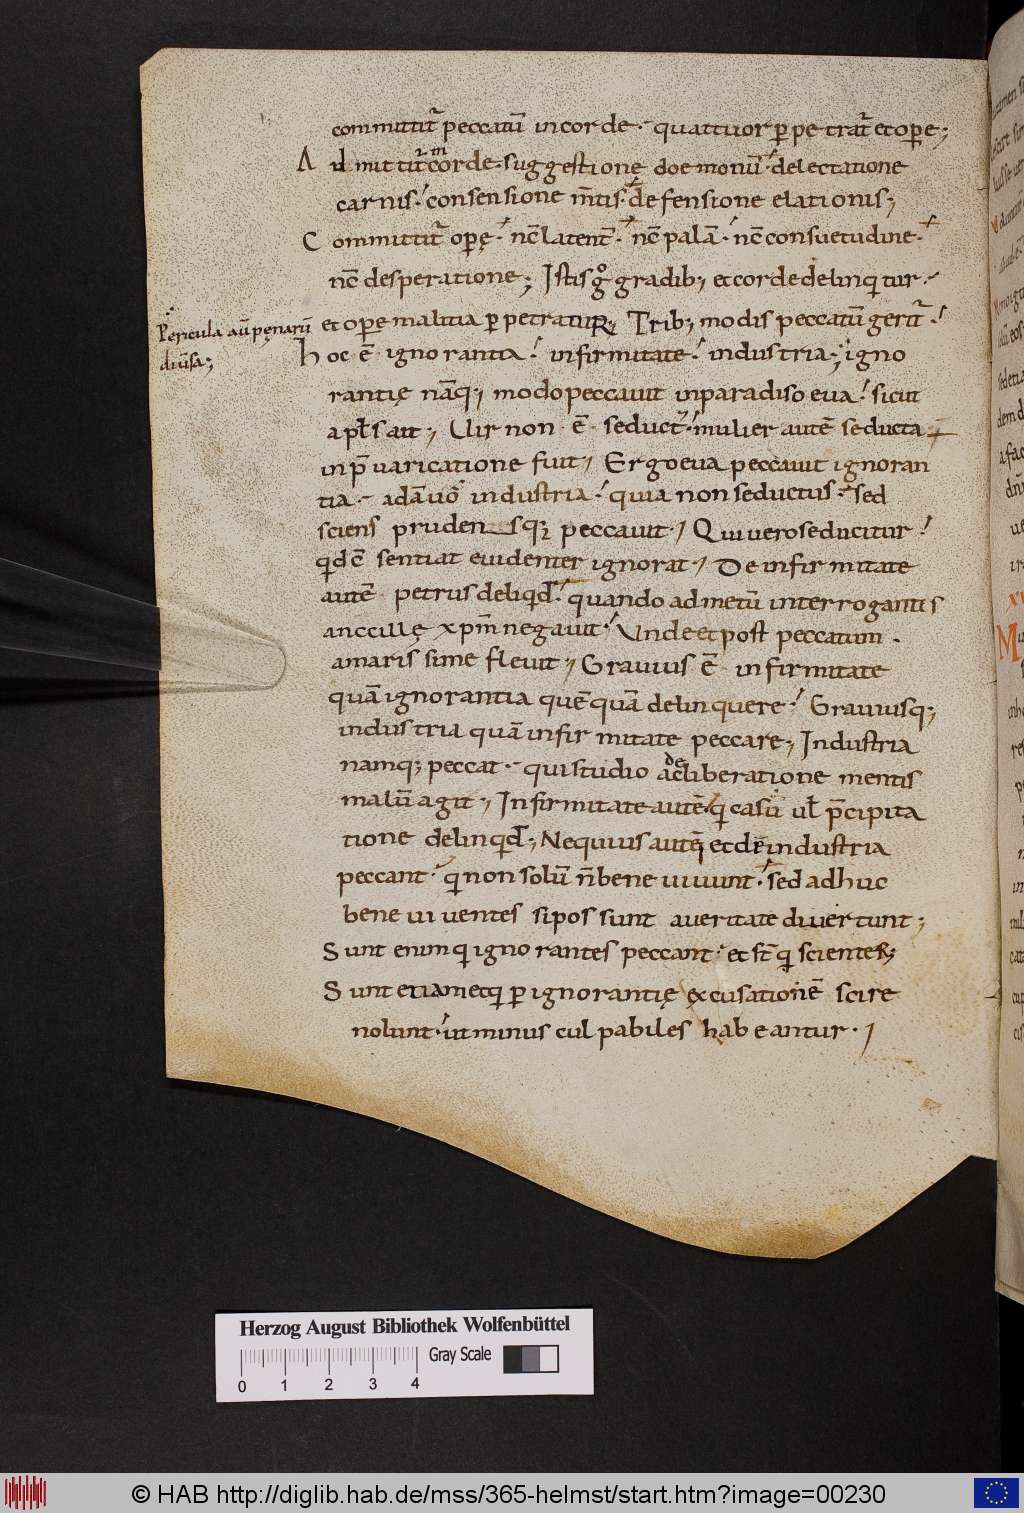 committit᷑ peccatū in corde· quattuor ꝑpetrat᷑ et oꝑe;
Admittit᷑ corde· suggestione doemonū· delectatione
carnis· consensione m̄tis· defensione elationis;
Committit᷑ oꝑę· nc̄ latent᷑· nc̄ palā· nc̄ consuetudine·
nc̄ desperatione; Istis gͦ gradib; et corde delinqitur·
Pericula aū pęnarū
diu̅sa;
et oꝑe malitia ꝑpetratur; Trib; modis peccatū gerit᷑·
hoc ē· ignorantia· infirmitate· industria; igno
rantię nāq; modo peccauit in paradiso eua· sicut
apłs ait; Uir non ē· seduct᷑· mulier autē seducta
in p̄uaricatione fuit; Ergo eua peccauit ignoran
tia· adā uͦo industria· quia non seductus· sed
sciens prudensq; peccauit; Qui uero seducitur·
qd ē sentiat euidenter ignorat; De infirmitate
autē· petrus deliqd· quando ad metū interrogantis
anccillę xpm̄ negauit· Unde et post peccatum·
amarissime fleuit; Grauius ē· infirmitate
quā ignorantia quēquā delinquere· Grauiusq;
industria quā infirmitate peccare; Industria
namq; peccat· qui studio ac deliberatione mentis
malū agit; Infirmitate autē· qi casū uł p̄cipita
tione delinqd; Nequius autē et de industria
peccant· qi non solū n̄ bene uiuunt· sed adhuc
bene uiuentes si pos sunt a ueritate diuertunt;
Sunt enim qi ignorantes peccant· et st̄ qi scientes;
Sunt etiam et qi ꝑ ignorantię excusationē scire
nolunt· ut minus culpabiles habeantur·
Herzog August Bibliothek Wolfenbüttel
Gray Scale
0 1 2 3 4
© HAB http://diglib.hab.de/mss/365-helmst/start.htm?image=00230